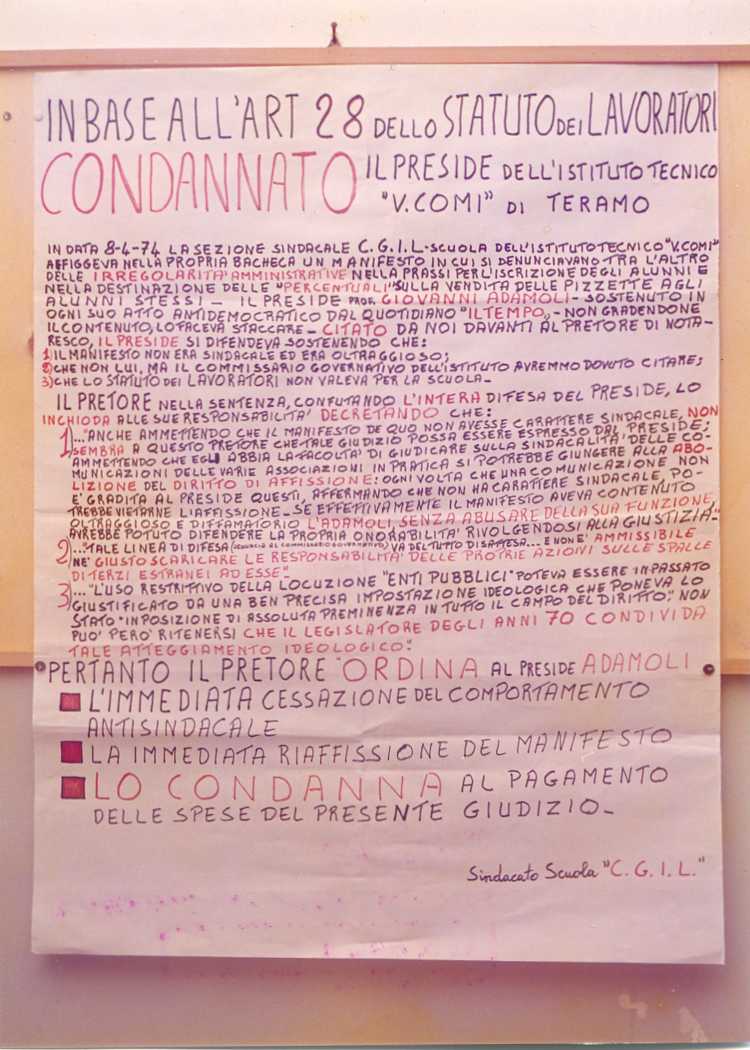 IN BASE ALL'ART 28 DELLO STATUTO DEI LAVORATORI
CONDANNATO IL PRESIDE DELL'ISTITUTO TECNICO
"V. COMI" DI TERAMO
IN DATA 8-4-74 LA SEZIONE SINDACALE C.G.I.L-SCUOLA DELL'ISTITUTO TECNICO "V. COMI"
AFFIGGEVA NELLA PROPRIA BACHECA UN MANIFESTO IN CUI SI DENUNCIAVANO TRA L'ALTRO
DELLE IRREGOLARITA' AMMINISTRATIVE NELLA PRASSI PER L'ISCRIZIONE DEGLI ALUNNI E
NELLA DESTINAZIONE DELLE "PERCENTUALI" SULLA VENDITA DELLE PIZZETTE AGLI
ALUNNI STESSI - IL PRESIDE PROF. GIOVANNI ADAMOLI - SOSTENUTO IN
OGNI SUO ATTO ANTIDEMOCRATICO DAL QUOTIDIANO "IL TEMPO" - NON GRADENDONE
IL CONTENUTO, LO FACEVA STACCARE - CITATO DA NOI DAVANTI AL PRETORE DI NOTA-
RESCO, IL PRESIDE SI DIFENDEVA SOSTENENDO CHE:
1) IL MANIFESTO NON ERA SINDACALE ED ERA OLTRAGGIOSO;
2) CHE NON LUI, MA IL COMMISSARIO GOVERNATIVO DELL'ISTITUTO AVREMMO DOVUTO CITARE;
3) CHE LO STATUTO DEI LAVORATORI NON VALEVA PER LA SCUOLA -
IL PRETORE NELLA SENTENZA, CONFUTANDO L'INTERA DIFESA DEL PRESIDE, LO
INCHIODA ALLE SUE RESPONSABILITA' DECRETANDO CHE:
1) ..."ANCHE AMMETTENDO CHE IL MANIFESTO DE QUO NON AVESSE CARATTERE SINDACALE, NON
SEMBRA A QUESTO PRETORE CHE TALE GIUDIZIO POSSA ESSERE ESPRESSO DAL PRESIDE;
AMMETTENDO CHE EGLI ABBIA LA FACOLTA' DI GIUDICARE SULLA SINDACALITA' DELLE CO-
MUNICAZIONI DELLE VARIE ASSOCIAZIONI IN PRATICA SI POTREBBE GIUNGERE ALLA ABO-
LIZIONE DEL DIRITTO DI AFFISSIONE: OGNI VOLTA CHE UNA COMUNICAZIONE NON
E' GRADITA AL PRESIDE QUESTI, AFFERMANDO CHE NON HA CARATTERE SINDACALE, PO-
TREBBE VIETARNE L'AFFISSIONE - SE EFFETTIVAMENTE IL MANIFESTO AVEVA CONTENUTO
OLTRAGGIOSO E DIFFAMATORIO L'ADAMOLI, SENZA ABUSARE DELLA SUA FUNZIONE,
AVREBBE POTUTO DIFENDERE LA PROPRIA ONORABILITA' RIVOLGENDOSI ALLA GIUSTIZIA"-
2) ..."TALE LINEA DI DIFESA VA DEL TUTTO DISATTESA... E NON E' AMMISSIBILE
NE' GIUSTO SCARICARE LE RESPONSABILITA' DELLE PROTRIE AZIONI SULLE SPALLE
DI TERZI ESTRANEI AD ESSE"-
3) ..."L'USO RESTRITTIVO DELLA LOCUZIONE "ENTI PUBBLICI" POTEVA ESSERE IN PASSATO
GIUSTIFICATO DA UNA BEN PRECISA IMPOSTAZIONE IDEOLOGICA CHE PONEVA LO
STATO "IN POSIZIONE DI ASSOLUTA PREMINENZA IN TUTTO IL CAMPO DEL DIRITTO". NON
PUO' PERO' RITENERSI CHE IL LEGISLATORE DEGLI ANNI 70 CONDIVIDA
TALE ATTEGGIAMENTO IDEOLOGICO".
PERTANTO IL PRETORE "ORDINA AL PRESIDE ADAMOLI
L'IMMEDIATA CESSAZIONE DEL COMPORTAMENTO
ANTISINDACALE
LA IMMEDIATA RIAFFISSIONE DEL MANIFESTO
LO CONDANNA AL PAGAMENTO
DELLE SPESE DEL PRESENTE GIUDIZIO -
Sindacato Scuola "C. G. I. L."